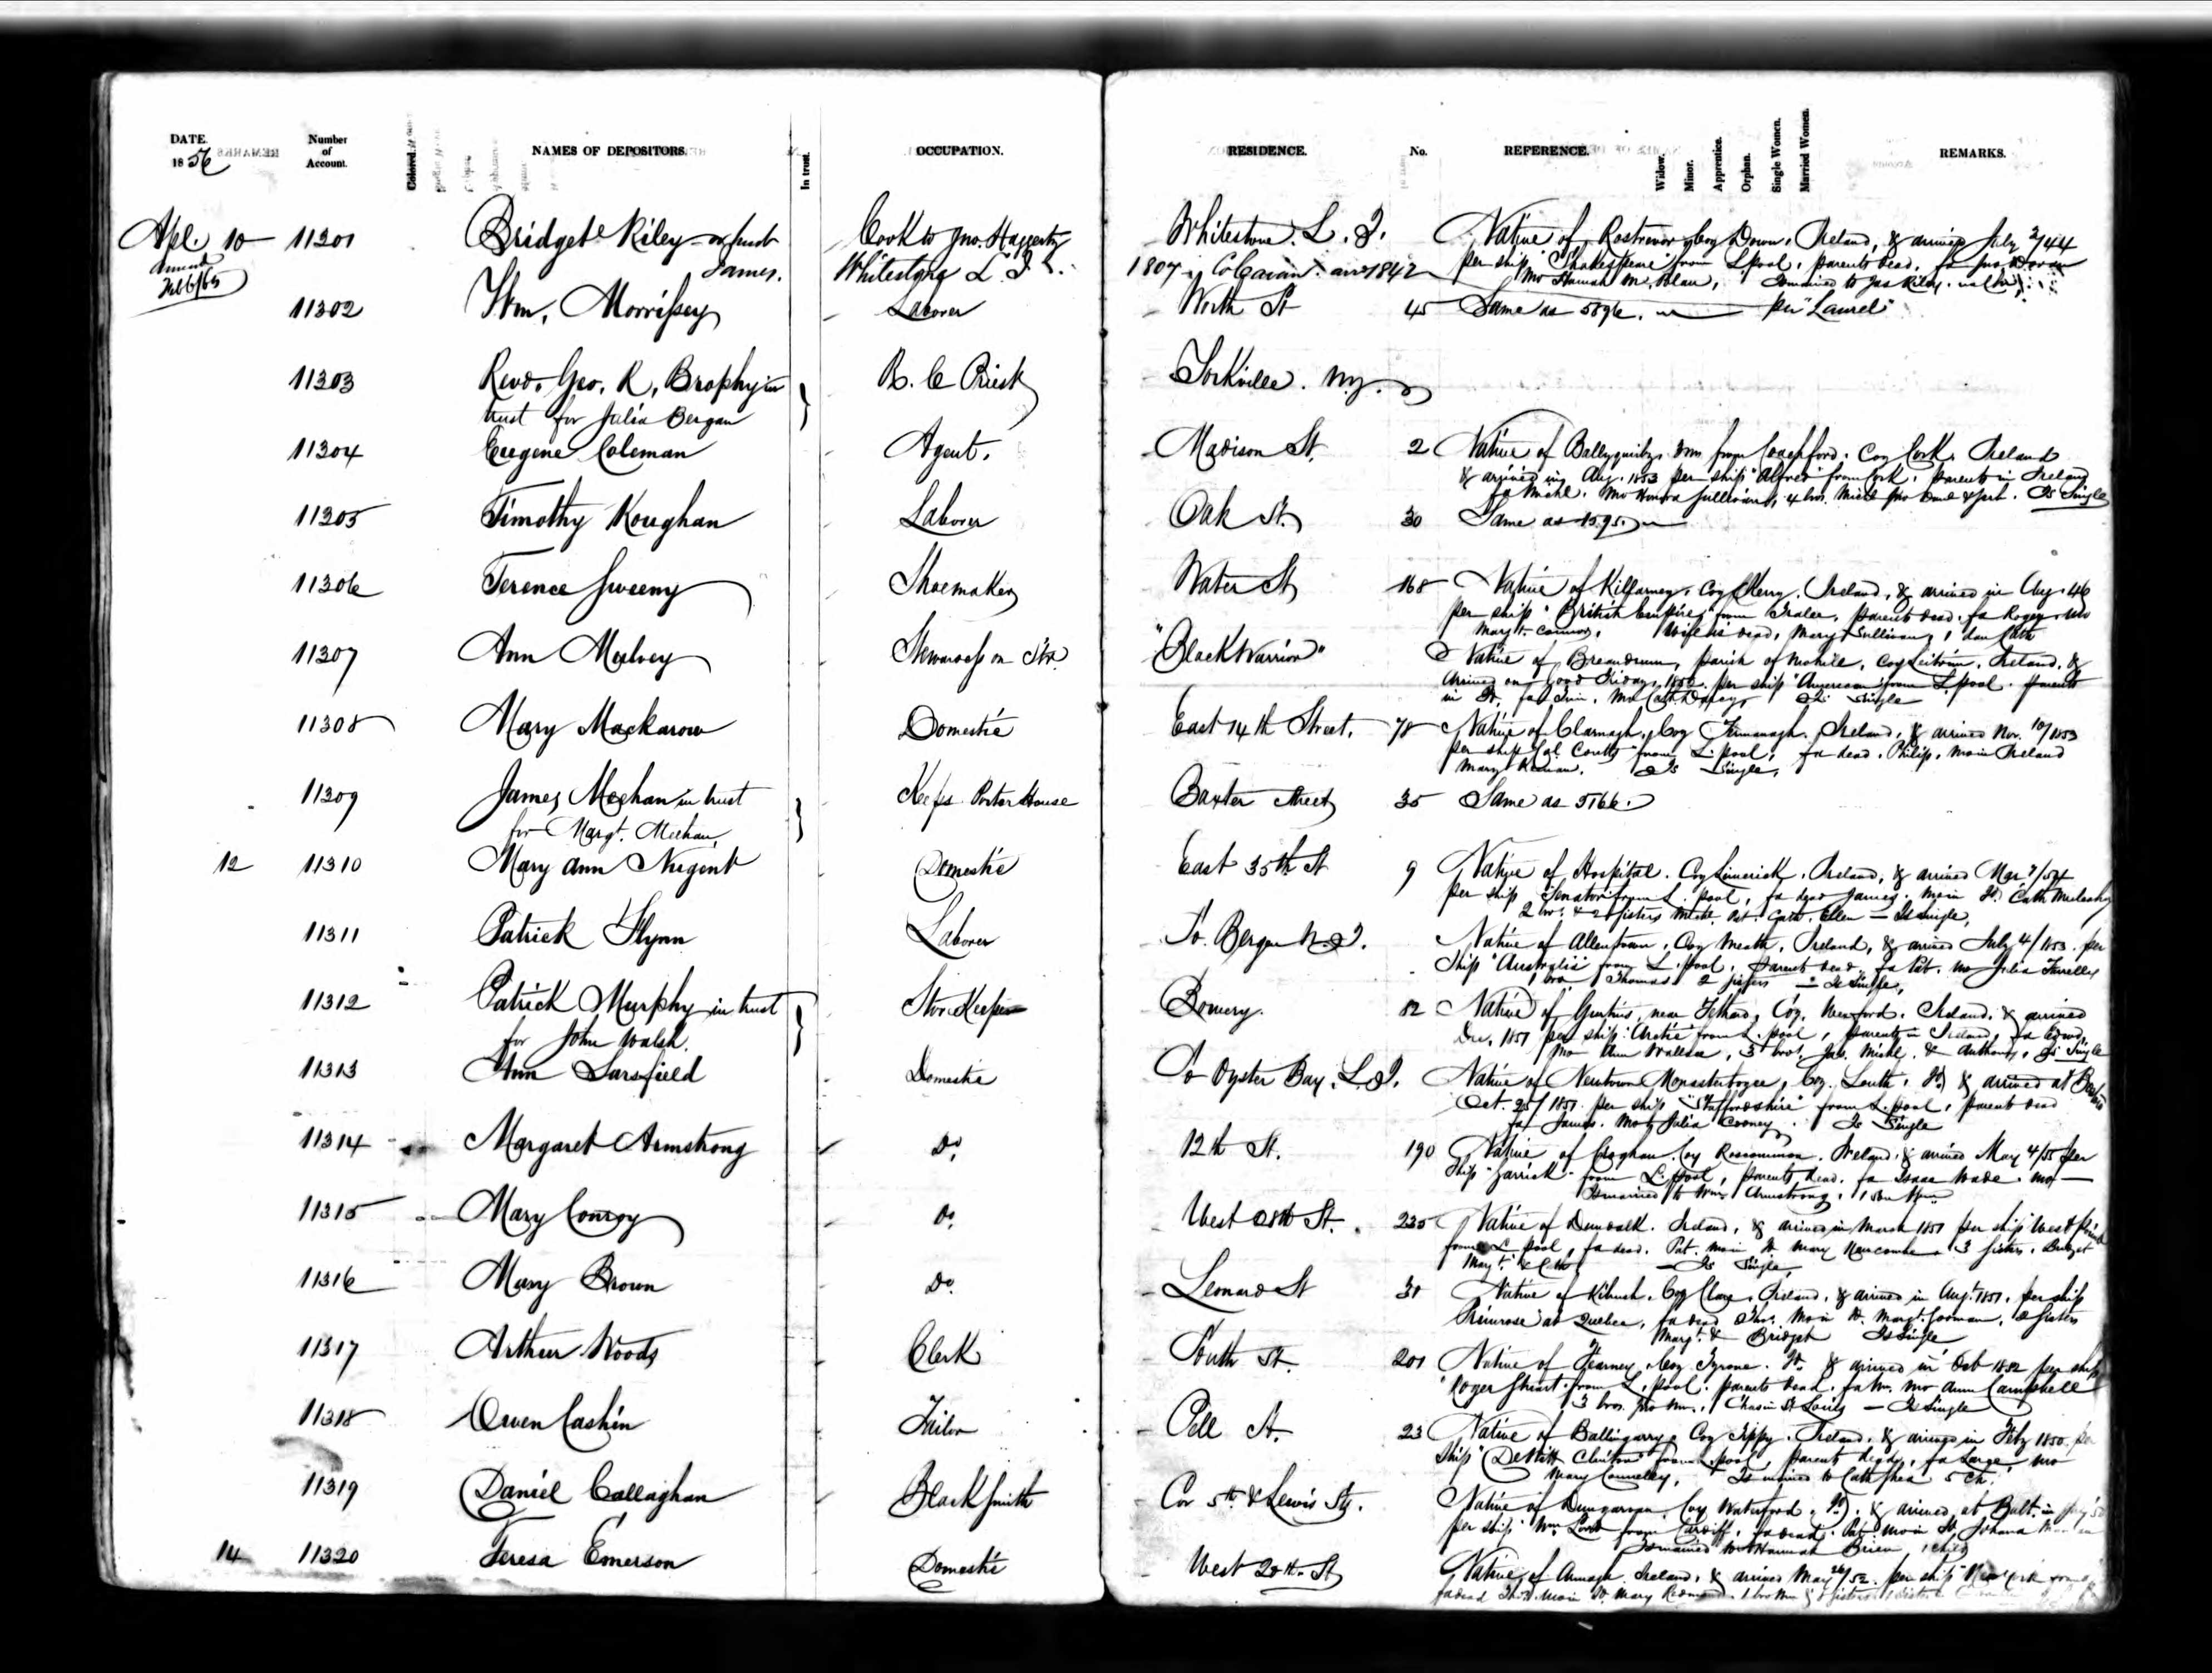 DATE. 1856
Number of Account.
Colored.
NAMES OF DEPOSITORS.
In trust.
OCCUPATION.
RESIDENCE.
No.
REFERENCE.
Widow.
Minor.
Apprentice.
Orphan.
Single Women.
Married Women.
REMARKS.
Apl. 10 11301 Bridget Riley or husb Cook to Jno. Haggerty Whitestone. L. I. Native of Rostrevor Coy Down, Ireland, & arrived July 2/44
James. Whitestone L. I. 1807 Co Cavan arr 1842 per ship "Shakespeare" from L pool, parents dead. fa Jno
Feb 6/65 Mo Hannah Is married to Jas Riley.
11302 Wm. Morrissey Laborer North St 45 Same as 5896. per "Laurel"
11303 Revd. Geo. R. Brophy in R. C Priest Yorkville. N.Y.
trust for Julia Bergan
11304 Eugene Coleman Agent. Madison St. 2 Native of from Coachford. Coy Cork. Ireland
& arrived in Aug. 1853 per ship "Alfred" from Cork. parents in Ireland
fa Michl. Mo Honora Sullivan, 4 bros. Michl Jno Danl & Is Single
11305 Timothy Koughan Laborer Oak St. 30 Same as 1595.
11306 Terence Sweeny Shoemaker Water St 168 Native of Killarney, Coy Kerry. Ireland, & arrived in Aug. 46
per ship "British Empire" from Tralee, parents dead, fa Roger, mo
Margt. Connor, Wife is dead, Mary Sullivan, 1 dau Cath
11307 Ann Mulvey Stewardess on Str. "Black Warrior" Native of parish of Mohill, Coy Leitrim. Ireland, &
arrived on Good Friday, per ship "American" from L pool. parents
in Id. fa Mo Cath Is Single
11308 Mary Mackarow Domestic East 14th Street. 78 Native of Clarnagh, Coy Fermanagh. Ireland, & arrived Nov. 10/1853
per ship from L. pool, fa dead. Philip. mo in Ireland
Mary Is Single,
11309 James Meehan in trust Keeps Porter House Baxter Street 35 Same as 5166.
for Margt. Meehan
12 11310 Mary Ann Nugent Domestic East 35th St 9 Native of Hospital. Coy Limerick. Ireland, & arrived Mar 7/54
per ship Senator from L. pool, fa dead James. mo in Id. Cath Mulcahy
2 bros. & 2 sisters Michl. Pat. Cath. Ellen — Is Single,
11311 Patrick Flynn Laborer So. Bergen N. J. Native of Allentown, Coy Meath, Ireland, & arrived July 4/1853. per
Ship "Australia" from L. pool, parents dead, fa Pat. mo Julia Farrelly
1 bro Thomas 2 sisters — Is Single,
11312 Patrick Murphy in trust Store Keeper Bowery. 82 Native of near Fethard, Coy. Wexford. Ireland, & arrived
for John Walsh. Dec. 1851 per ship "Arctic" from L. pool, parents in Ireland, fa Edwd,
mo Ann Wallace, 3 bros. Jas. Michl. & Anthony, Is Single
11313 Ann Sarsfield Domestic So Oyster Bay. L. I. Native of Newtown Monasterboyce, Coy. Louth. Id. & arrived at Boston
Oct. 25/1851. per ship "Staffordshire" from L. pool, parents dead
fa James. Mo Julia Cooney. Is Single
11314 Margaret Armstrong Do. 12th St. 190 Native of Croghan Coy Roscommon. Ireland, & arrived May 4/55 per
Ship "Garrick" from L. pool, parents dead. fa Isaac Wade. mo —
Is married to Wm. Armstrong, 1 son Wm
11315 Mary Conroy Do. West 28th St. 235 Native of Dundalk. Ireland, & arrived in March 1851 per ship West Point
from L. pool, fa dead. Pat. mo in Id Mary 3 Sisters, Bridget
Margt. & Cath — Is Single,
11316 Mary Brown Do. Leonard St 31 Native of Kilrush. Coy Clare, Ireland, & arrived in Augt. 1851. per ship
Primrose at Quebec, fa dead Thos. Mo in Id. Margt. Gorman, 2 Sisters
Margt. & Bridget Is Single
11317 Arthur Woods Clerk South St. 201 Native of Coy. Tyrone. Id. & arrived in Feb 1852 per ship
"Roger Stuart" from L. pool. parents dead. fa Wm. mo Ann Campbell
3 bros. Jno Wm., Chas in St Louis — Is Single
11318 Owen Cashin Tailor Pell St. 23 Native of Ballingarry, Coy Tippy. Ireland, & arrived in Feby 1850. per
Ship "DeWitt Clinton" from L pool, parents dead, fa mo
Mary Connelly, Is married to Cath Shea 5 ch.
11319 Daniel Callaghan Blacksmith Cor 5th. & Lewis Sts. Native of Dungarvan, Coy Waterford, Id, & arrived at Balt. in
per ship Wm. from Cardiff. fa dead. Pat. mo in Id, Johana
Is married to Hannah Brien, 1 child
14 11320 Teresa Emerson Domestic West 20th. St Native of Armagh. Ireland, & arrived May 26/52. per ship New York from
fa dead Mo in Id. Mary Redmond. 1 bro Wm